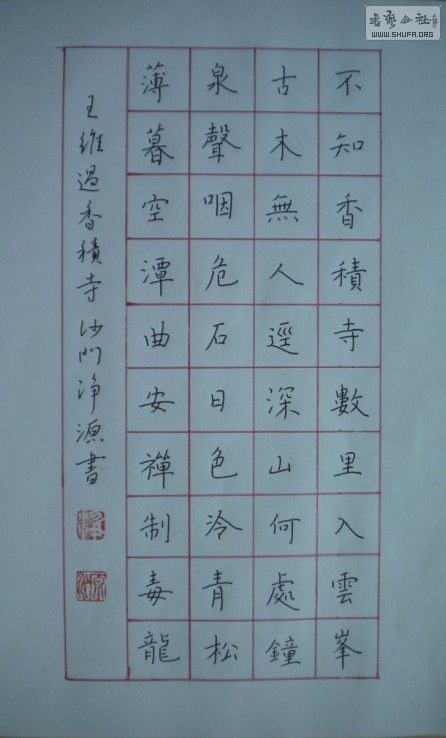 不知香積寺數里入雲峯
古木無人逕深山何處鐘
泉聲咽危石日色泠青松
薄暮空潭曲安禪制毒龍
王維過香積寺沙門净源書
書藝公社
WWW.SHUFA.ORG